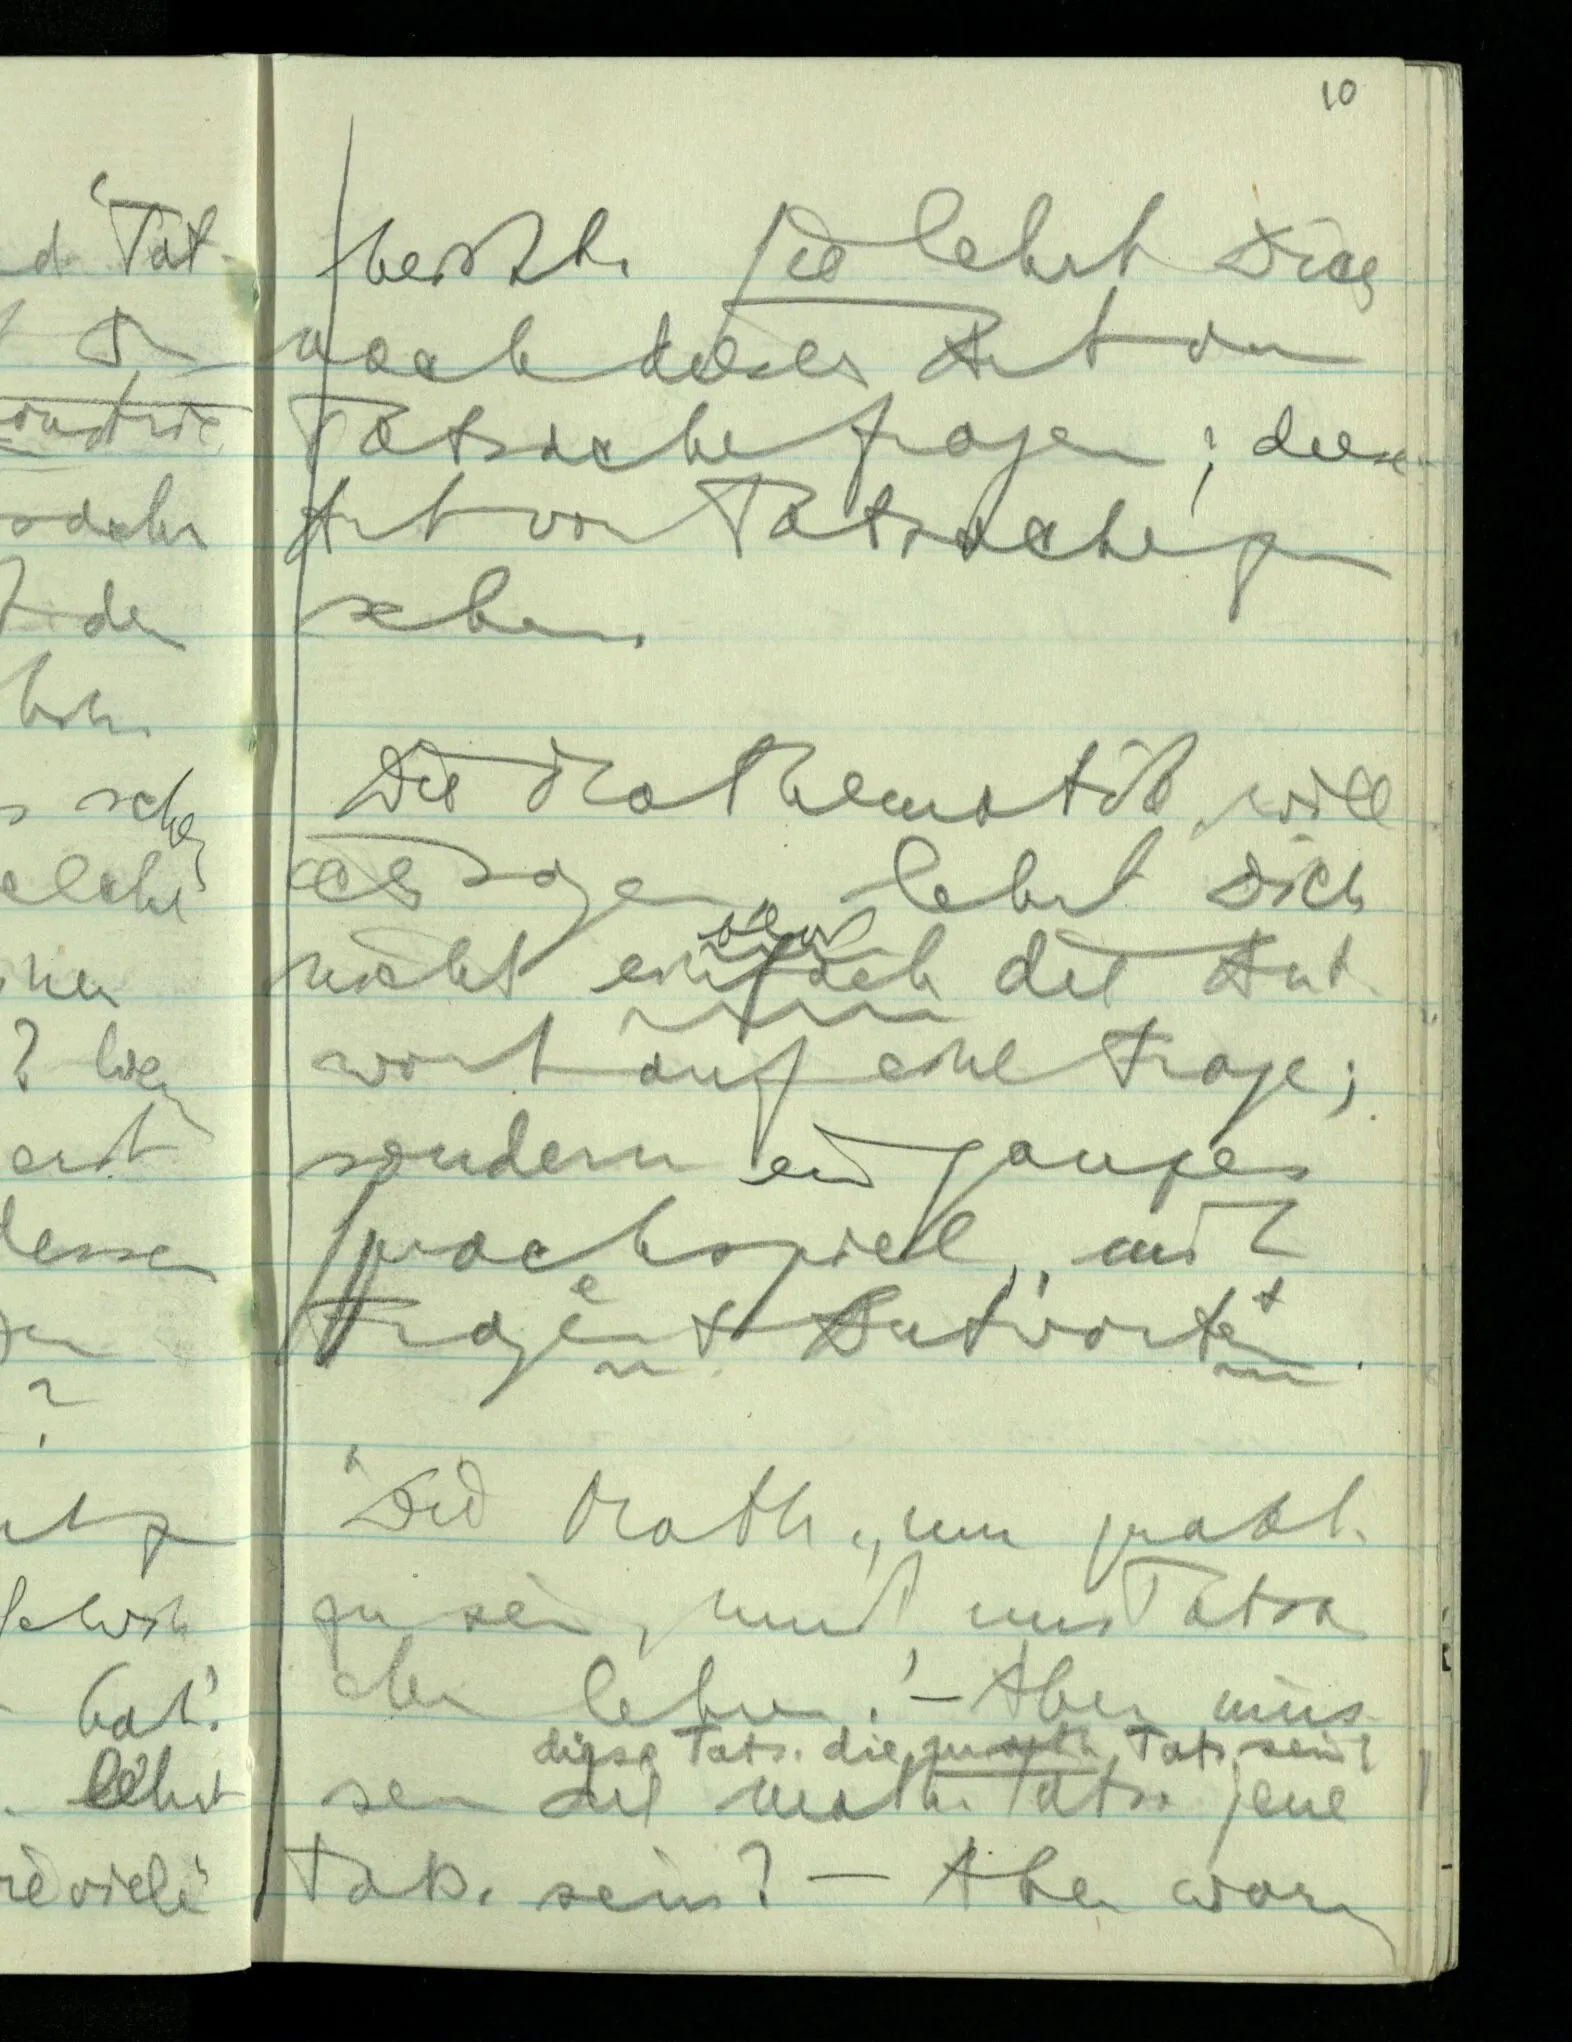 10
d. 'Tat-
heißt. Sie lehrt Dich
nach dieser Art von
Tatsache fragen; diese
Art von Tatsache zu
sehen.
Die Mathematik, will
ich sagen, lehrt Dich
nicht einfach die Ant-
wort auf eine Frage;
sondern ein ganzes
Sprachspiel, mit
Fragen & Antworten.
"Die Math., um prakt.
zu sein, muß uns Tatsa
chen lehren." – Aber müs-
diese Tats. die math. Tats. sein?
sen die math. Tats. jene
Tats. sein? – Aber warum
den
sehen
? wen
erst
dessen
?
hat?
lehrt
wieviele'